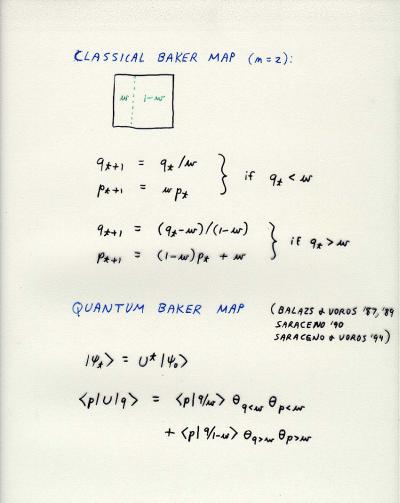 CLASSICAL BAKER MAP (m=2):
w 1-w
q_{t+1} = q_t/w
p_{t+1} = w p_t
if q_t < w
q_{t+1} = (q_t-w)/(1-w)
p_{t+1} = (1-w)p_t + w
if q_t > w
QUANTUM BAKER MAP
(BALAZS & VOROS '87, '89
SARACENO '90
SARACENO & VOROS '94)
|ψ_t> = U^t |ψ_0>
<p|U|q> = <p|q/w> θ_{q<w} θ_{p<w}
+ <p|q/1-w> θ_{q>w} θ_{p>w}